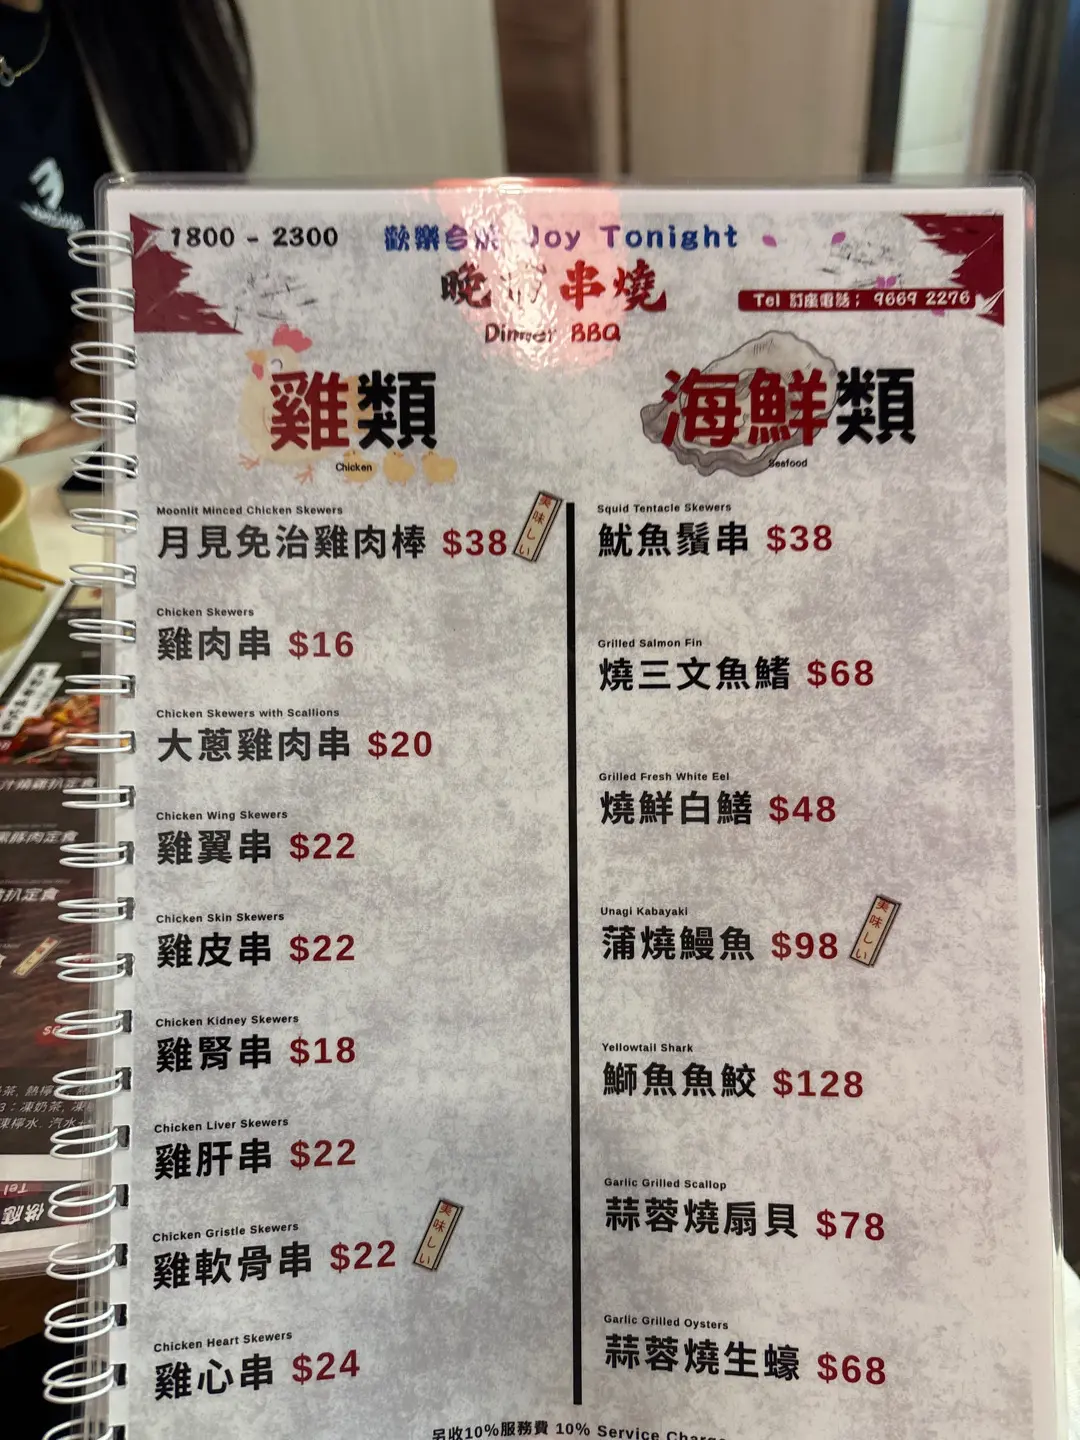 1800 - 2300
歡樂今宵 Joy Tonight
晚市串燒
Dinner BBQ
Tel 訂座電話： 9669 2276
雞類
Chicken
Moonlit Minced Chicken Skewers
月見免治雞肉棒 $38
美味しい
Chicken Skewers
雞肉串 $16
Chicken Skewers with Scallions
大蔥雞肉串 $20
Chicken Wing Skewers
雞翼串 $22
Chicken Skin Skewers
雞皮串 $22
Chicken Kidney Skewers
雞腎串 $18
Chicken Liver Skewers
雞肝串 $22
Chicken Gristle Skewers
雞軟骨串 $22
美味しい
Chicken Heart Skewers
雞心串 $24
海鮮類
Seafood
Squid Tentacle Skewers
魷魚鬚串 $38
Grilled Salmon Fin
燒三文魚鰭 $68
Grilled Fresh White Eel
燒鮮白鱔 $48
Unagi Kabayaki
蒲燒鰻魚 $98
美味しい
Yellowtail Shark
鰤魚魚鮫 $128
Garlic Grilled Scallop
蒜蓉燒扇貝 $78
Garlic Grilled Oysters
蒜蓉燒生蠔 $68
另收10%服務費 10% Service Charge
汁燒雞扒定食
豚肉定食
扒定食
茶, 熱檸
3：凍奶茶, 凍
凍檸水, 汽水
Tel